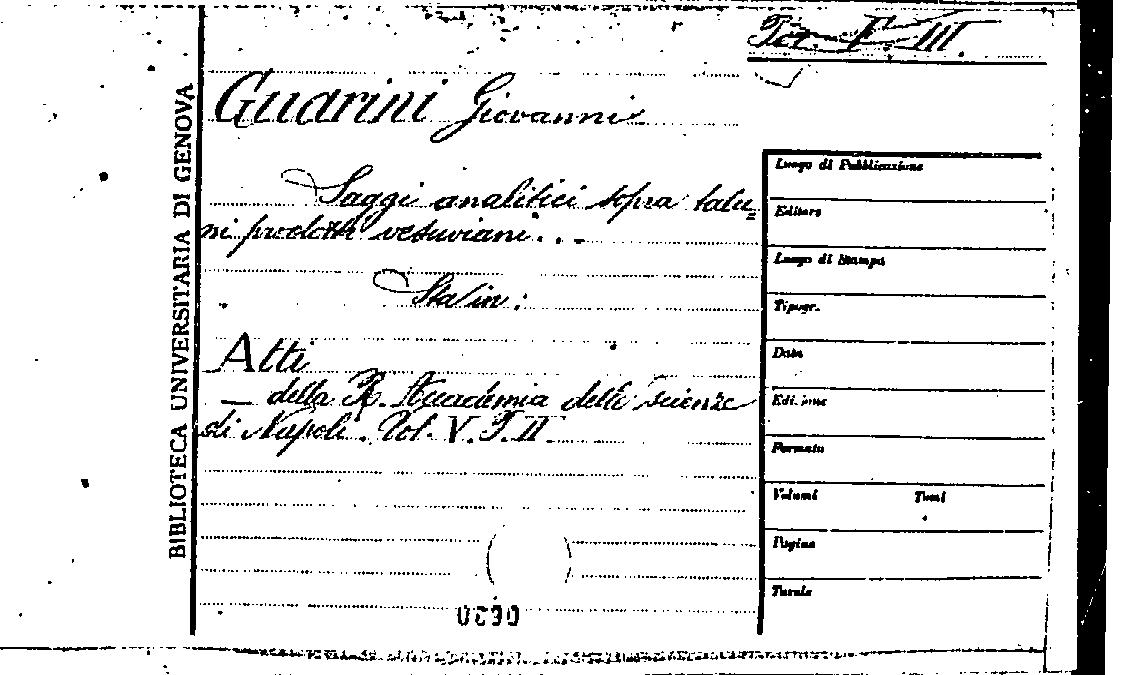 Guarini Giovanni
Saggi analitici sopra talu=
ni prodotti vesuviani...
Sta in:
Atti
— della R. Accademia delle Scienze
di Napoli. Vol. V. P. II
BIBLIOTECA UNIVERSITARIA DI GENOVA
Luogo di Pubblicazione
Editore
Luogo di Stampa
Tipogr.
Data
Edizione
Formato
Volumi Tomi
Pagine
Tavole